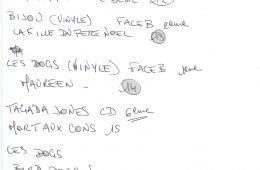 BIJOU (VINYLE) FACE B 2eme
LA FILLE DU PERE NOEL
13
LES DOGS (VINYLE) FACE B 1ere
MAUREEN -
14
TAGADA JONES CD 6eme
MORT AUX CONS 15
LES DOGS